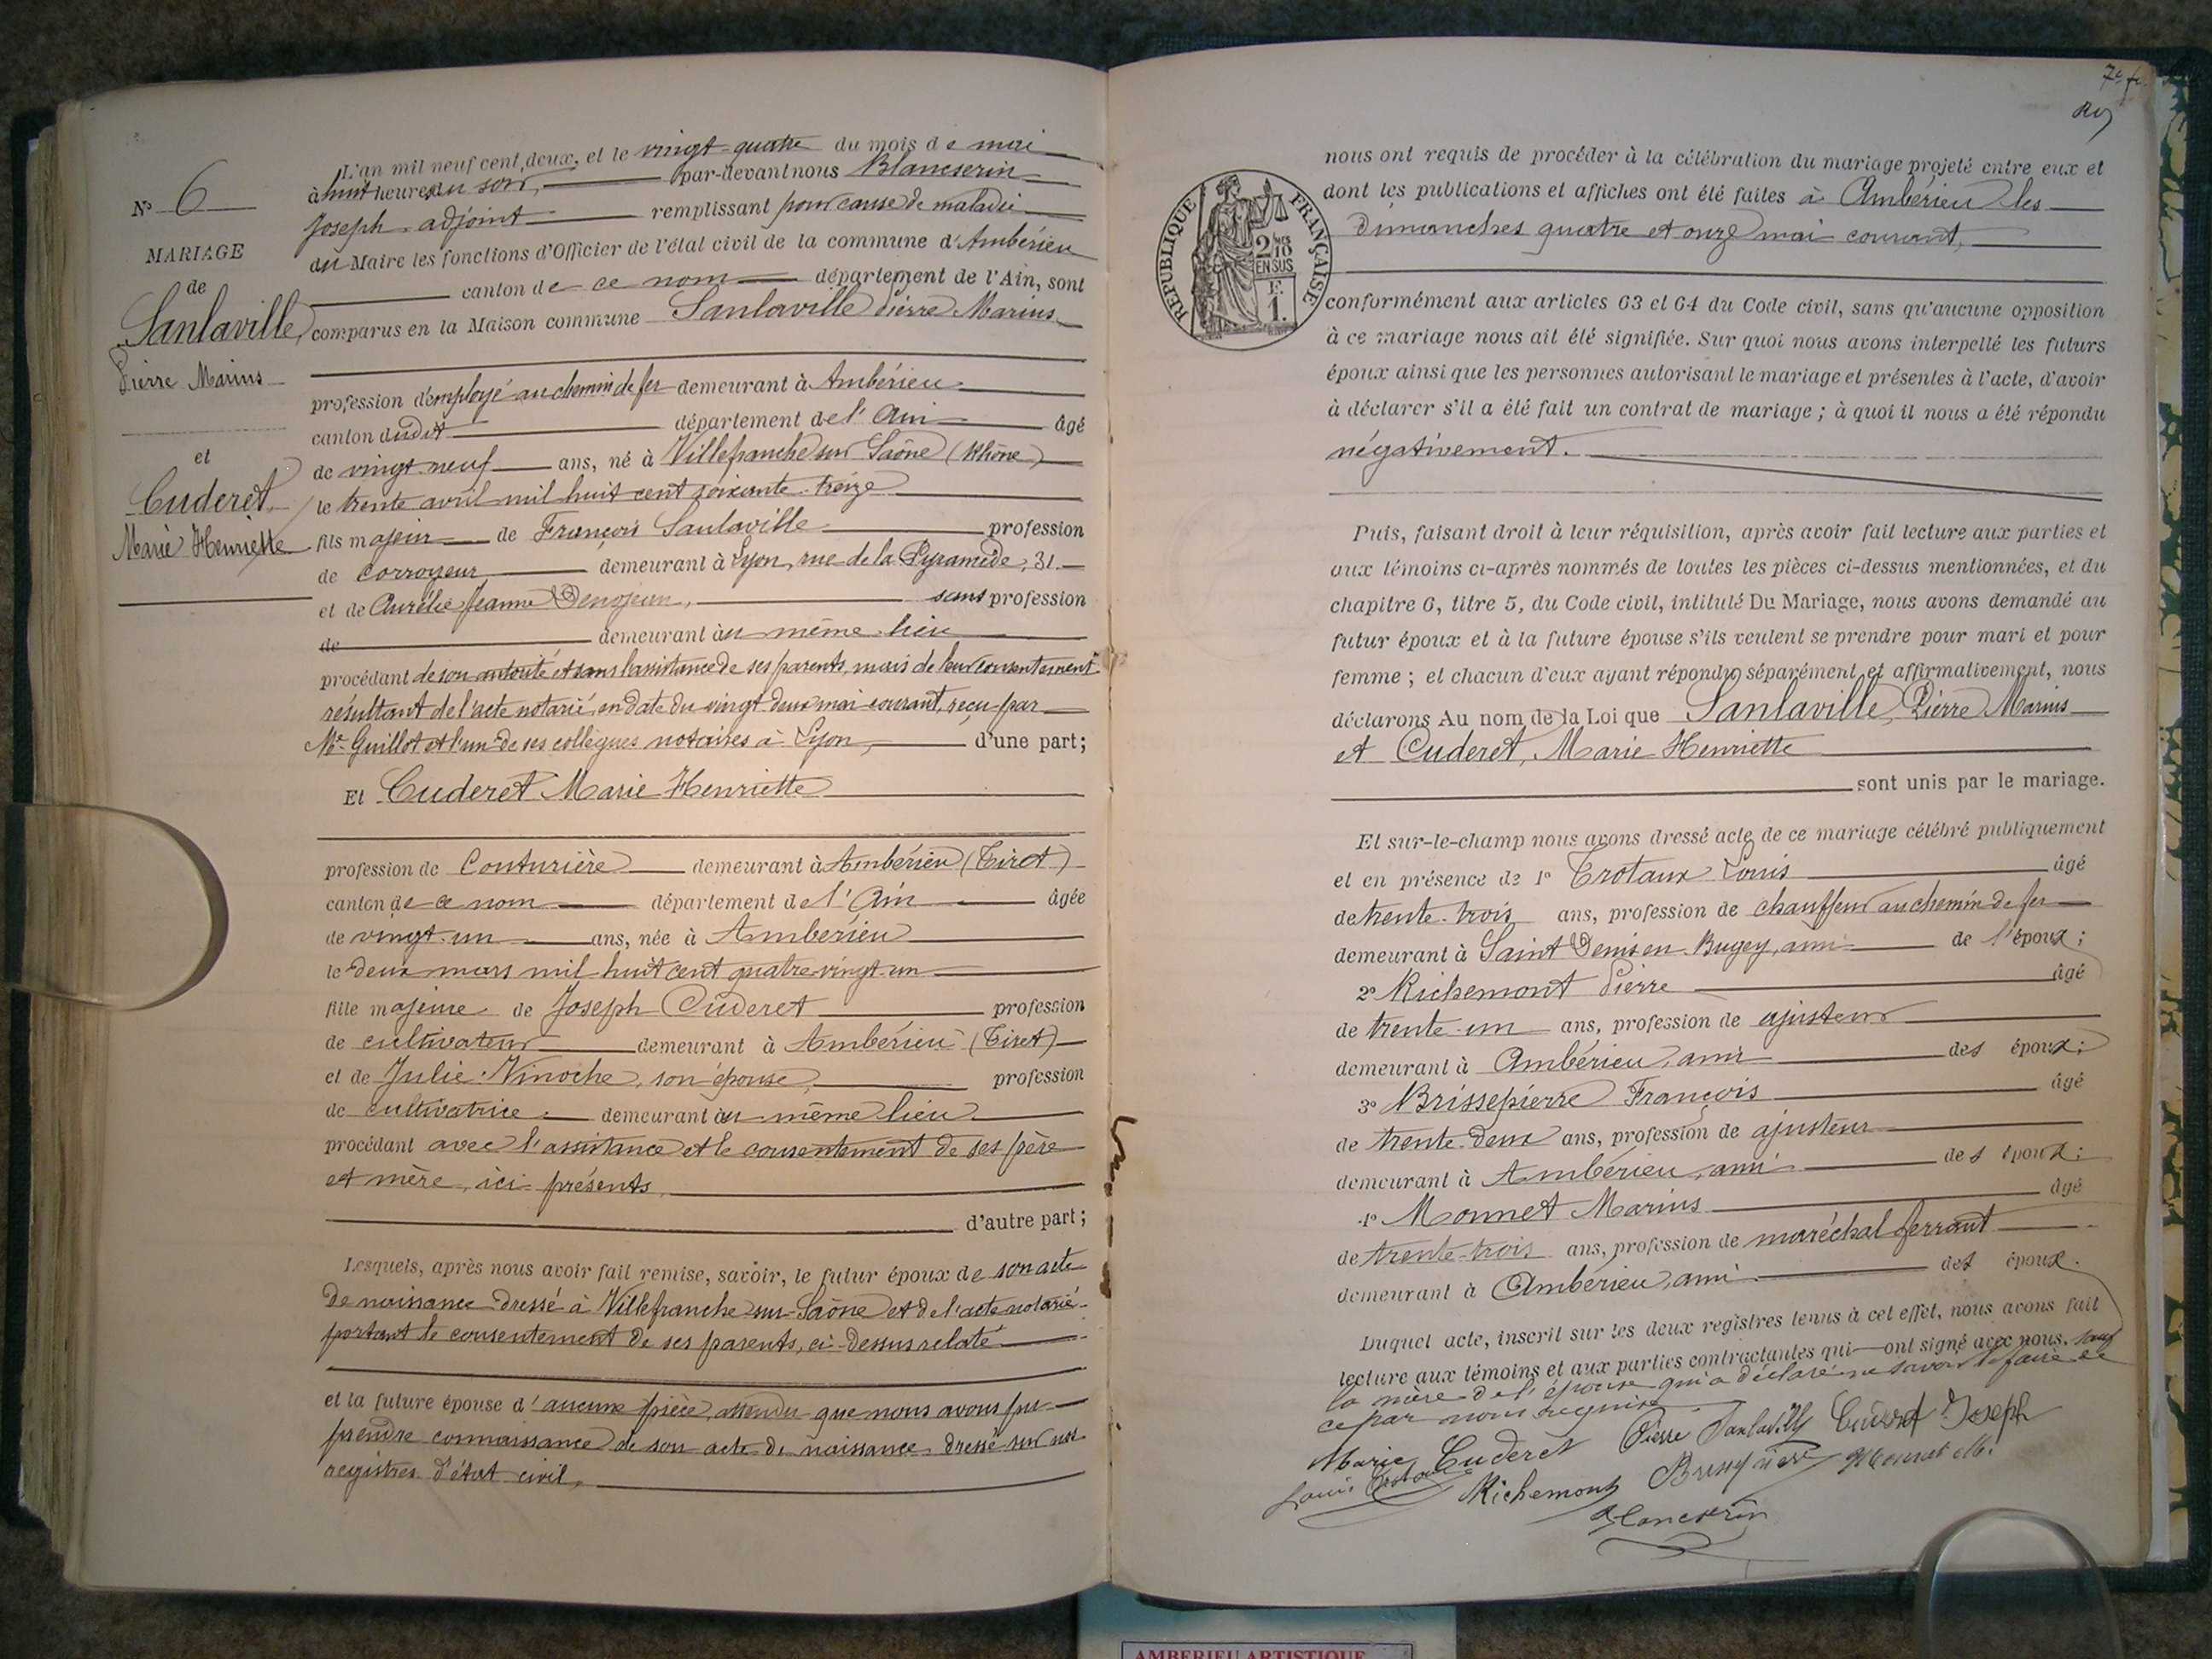 N° 6
MARIAGE
de
Sanlaville
Pierre Marius
et
Cuderet
Marie Henriette
L'an mil neuf cent deux, et le vingt-quatre du mois de mai
à huit heures du soir, par-devant nous Blancserin
Joseph, adjoint remplissant pour cause de maladie
du Maire les fonctions d'Officier de l'état civil de la commune d'Ambérieu
canton de ce nom département de l'Ain, sont
comparus en la Maison commune Sanlaville Pierre Marius
profession d'employé au chemin de fer demeurant à Ambérieu
canton dudit département de l'Ain âgé
de vingt-neuf ans, né à Villefranche sur Saône (Rhône)
le trente avril mil huit cent soixante-treize
fils majeur de François Sanlaville profession
de corroyeur demeurant à Lyon, rue de la Pyramide, 31.
et de Aurélie Jeanne sans profession
de demeurant au même lieu
procédant de son autorité et sans l'assistance de ses parents, mais de leur consentement
résultant de l'acte notarié, en date du vingt-deux mai courant, reçu par
Me Guillot et l'un de ses collègues notaires à Lyon, d'une part;
Et Cuderet Marie Henriette
profession de Couturière demeurant à Ambérieu (Tiret)
canton de ce nom département de l'Ain âgée
de vingt-un ans, née à Ambérieu
le deux mars mil huit cent quatre vingt-un
fille majeure de Joseph Cuderet profession
de cultivateur demeurant à Ambérieu (Tiret)
et de Julie Vinoche, son épouse, profession
de cultivatrice demeurant au même lieu
procédant avec l'assistance et le consentement de ses père
et mère, ici présents,
d'autre part;
Lesquels, après nous avoir fait remise, savoir, le futur époux de son acte
de naissance dressé à Villefranche-sur-Saône et de l'acte notarié
portant le consentement de ses parents, ci-dessus relaté
et la future épouse d'aucune pièce, attendu que nous avons pu
prendre connaissance de son acte de naissance dressé sur nos
registres d'état civil,
7e f.
REPUBLIQUE FRANÇAISE
2/10
EN SUS
F.
1.
nous ont requis de procéder à la célébration du mariage projeté entre eux et
dont les publications et affiches ont été faites à Ambérieu les
Dimanches quatre et onze mai courant,
conformément aux articles 63 et 64 du Code civil, sans qu'aucune opposition
à ce mariage nous ait été signifiée. Sur quoi nous avons interpellé les futurs
époux ainsi que les personnes autorisant le mariage et présentes à l'acte, d'avoir
à déclarer s'il a été fait un contrat de mariage ; à quoi il nous a été répondu
négativement.
Puis, faisant droit à leur réquisition, après avoir fait lecture aux parties et
aux témoins ci-après nommés de toutes les pièces ci-dessus mentionnées, et du
chapitre 6, titre 5, du Code civil, intitulé Du Mariage, nous avons demandé au
futur époux et à la future épouse s'ils veulent se prendre pour mari et pour
femme ; et chacun d'eux ayant répondu séparément et affirmativement, nous
déclarons Au nom de la Loi que Sanlaville, Pierre Marius
et Cuderet, Marie Henriette
sont unis par le mariage.
Et sur-le-champ nous avons dressé acte de ce mariage célébré publiquement
et en présence de 1° Trotaux Louis âgé
de trente-trois ans, profession de chauffeur au chemin de fer
demeurant à Saint Denis en Bugey, ami de l'époux;
2° Richemont Pierre âgé
de trente-un ans, profession de ajusteur
demeurant à Ambérieu, ami des époux;
3° Brissepierre François âgé
de trente-deux ans, profession de ajusteur
demeurant à Ambérieu, ami des époux;
4° Monnet Marius âgé
de trente-trois ans, profession de maréchal ferrant
demeurant à Ambérieu, ami des époux.
Duquel acte, inscrit sur les deux registres tenus à cet effet, nous avons fait
lecture aux témoins et aux parties contractantes qui ont signé avec nous, sauf
la mère de l'épouse qui a déclaré ne savoir le faire de
ce par nous requise.
Marie Cuderet Pierre Sanlaville Cuderet Joseph
Louis Trotaux Richemont Brissepierre Monnet M.
Blancserin
AMBERIEU ARTISTIQUE